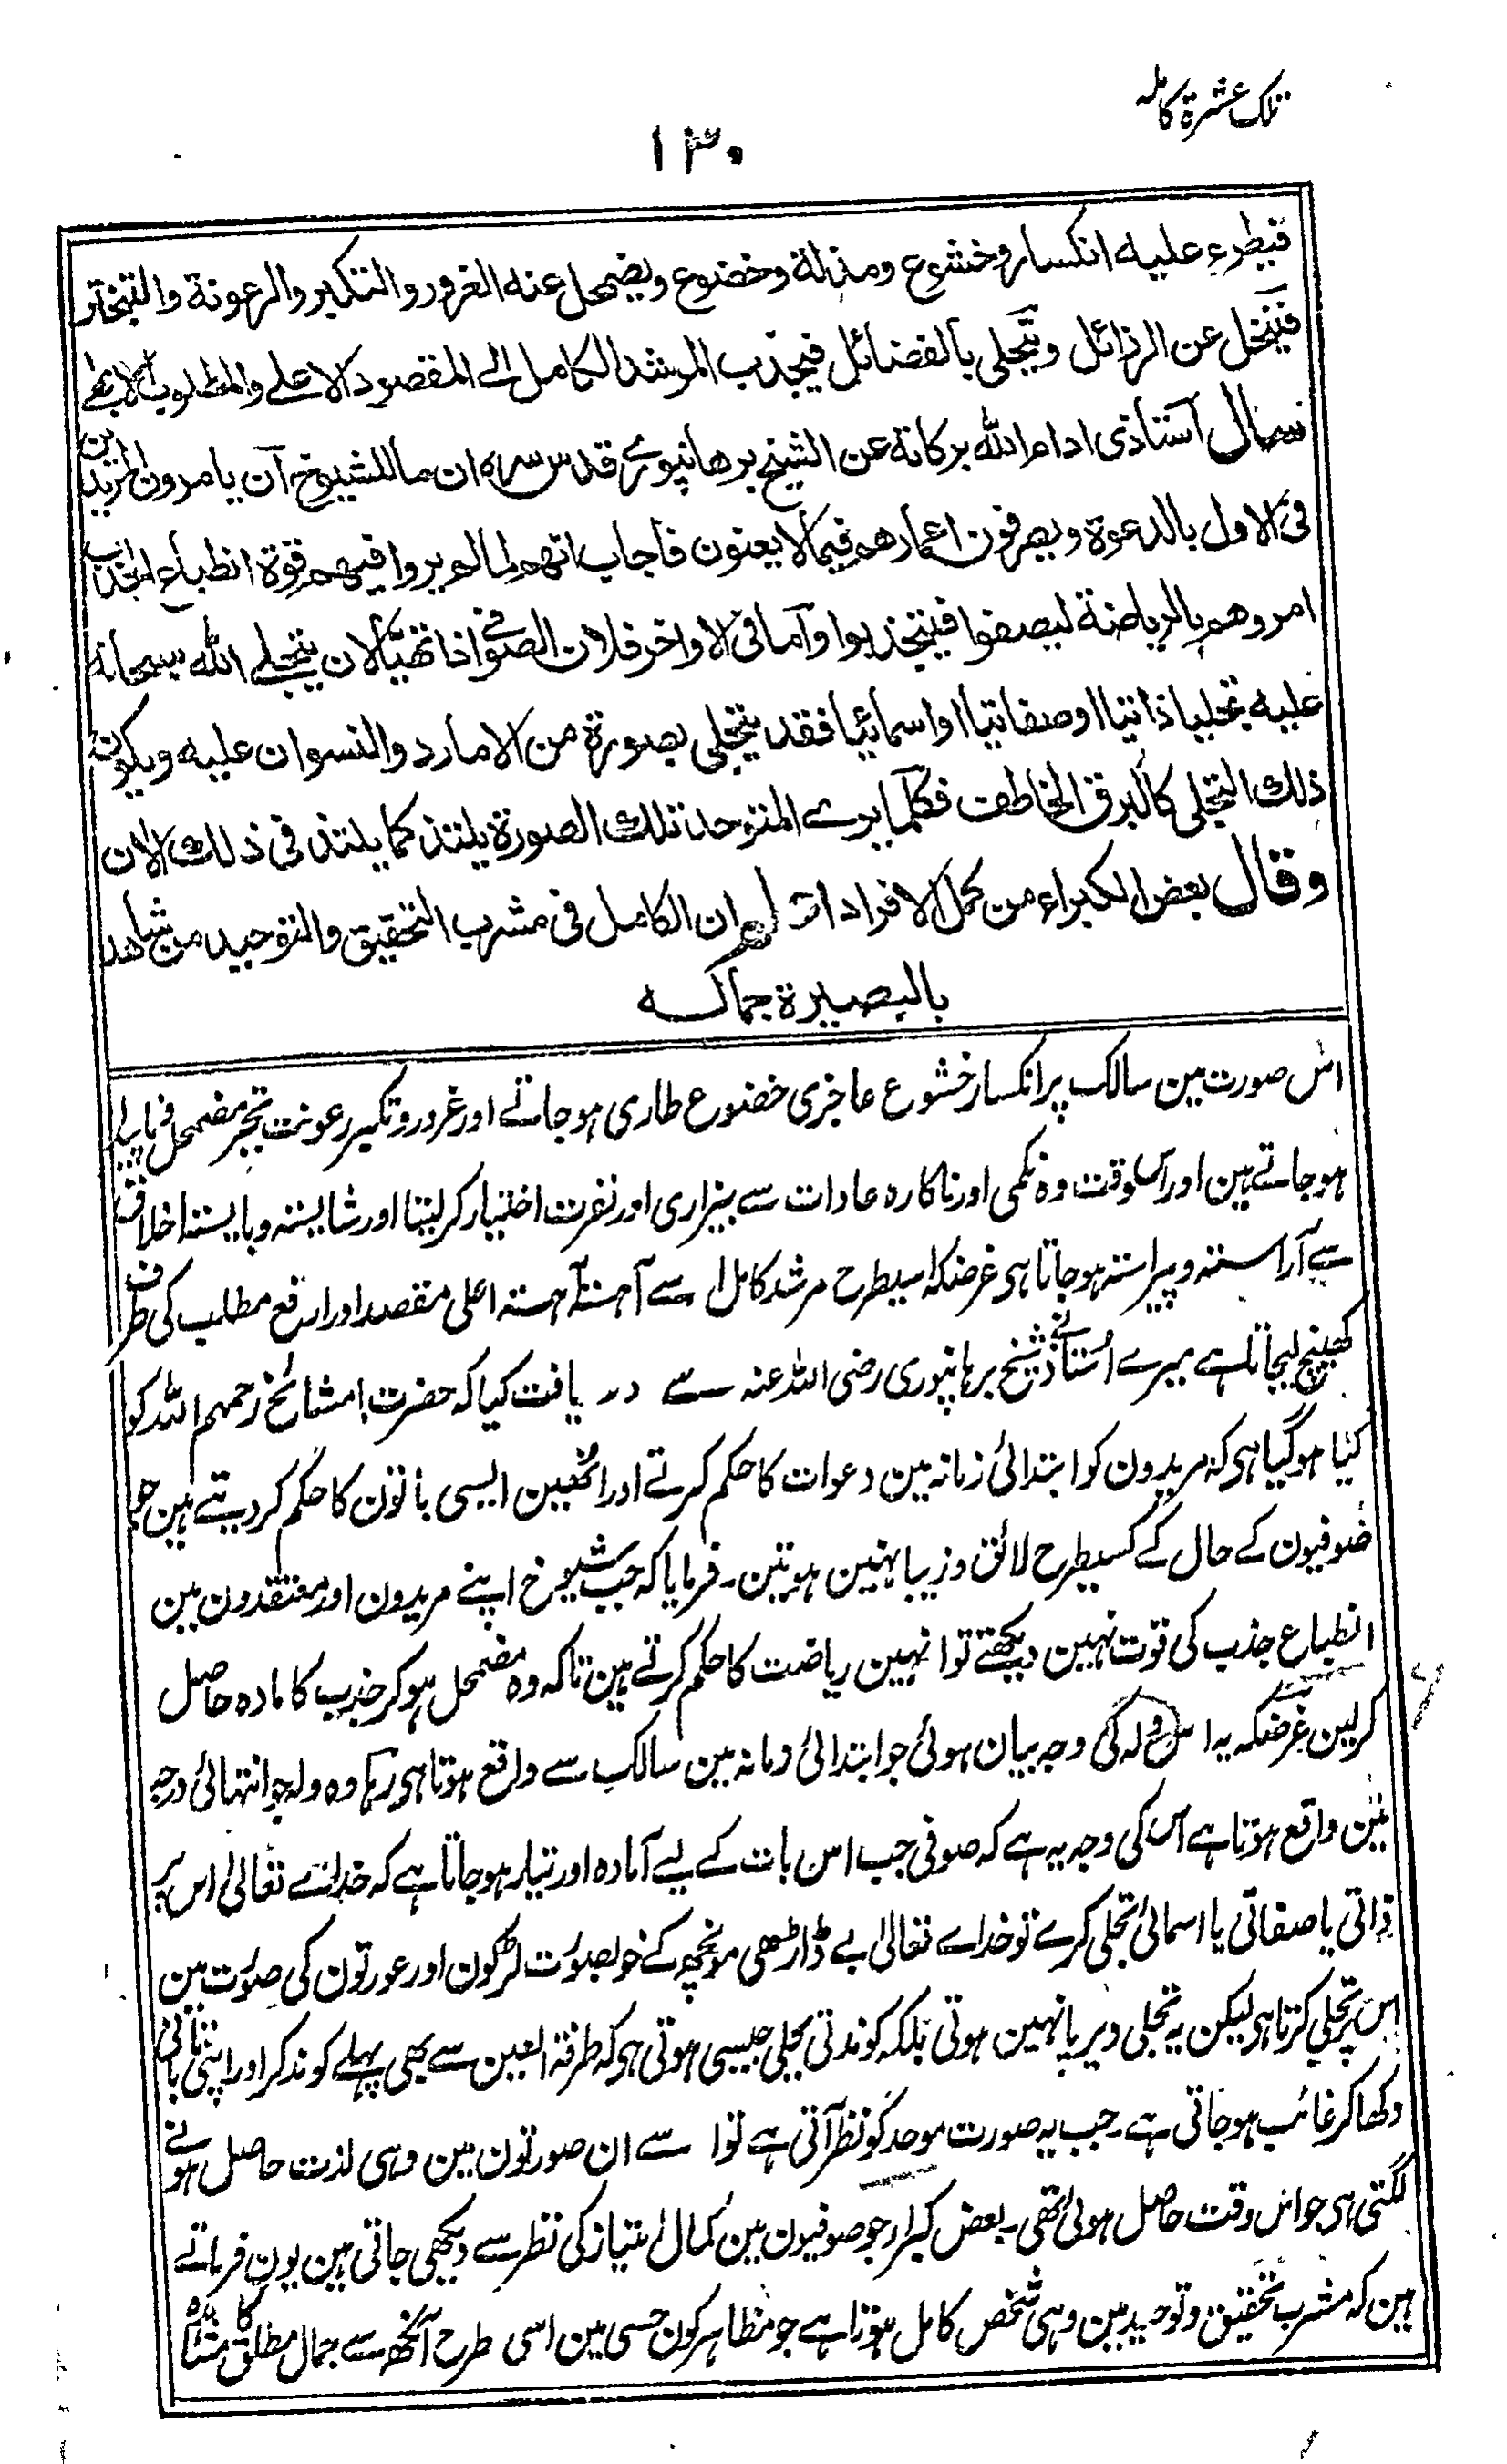 تلک عشرۃ کاملہ
۱۳۰
فیطرء علیہ انکسار وخشوع ومذلة وخضوع ویضمحل عنه الغرور والتکبر والرعونة والتبختر
فیتخلى عن الرذائل ویتجلى بالفضائل فیجذب المرشد الکامل الے المقصود الاعلے والمطلوب الابهے
سال استاذی ادام الله برکاته عن الشیخ برهانپورے قدس سرہ ان ما للشیوخ ان یامرون المریدین
فی الاول بالدعوة ویصرفون اعمارهم فیما لا یعنون فاجاب انهم لما لم یروا فیهم قوة انطباع الجذب
امروهم بالریاضة لیصفوا فینجذبوا واما فی الاواخر فلان الصوفے اذا تهیأ لان یتجلے الله سبحانه
علیه تجلیا ذاتیا او صفاتیا او اسمائیا فقد یتجلى بصورة من الامارد والنسوان علیه ویکون
ذلك التجلی کالبرق الخاطف فکلما یرے المتوحد تلك الصورة یلتذ کما یلتذ فی ذلك الان
وقال بعض الکبراء من کمل الافراد ان الکامل فی مشرب التحقیق والتوحید من شاهد
بالبصیرة جماله
اس صورت مین سالک پر انکسار خشوع عاجزی خضوع طاری ہو جاتے اور غرور و تکبر رعونت تبختر مضمحل و ناپید
ہو جاتے ہین اور اسوقت وہ نکمی اور ناکارہ عادات سے بیزاری اور نفرت اختیار کر لیتا اور شایستہ و بایستہ اخلاق
سے آراستہ و پیراستہ ہو جاتا ہی غرضکہ اسیطرح مرشد کامل اسے آہستہ آہستہ اعلی مقصد اور ارفع مطلب کی طرف
کھینچ لیجاتا ہے میرے اُستاذ نے شیخ برہانپوری رضی اللہ عنہ سے دریافت کیا کہ حضرت مشائخ رحمہم اللہ کو
کیا ہو گیا ہی کہ مریدون کو ابتدائی زمانہ مین دعوات کا حکم کرتے اور انھین ایسی باتون کا حکم کر دیتے ہین جو
صوفیون کے حال کے کسیطرح لائق و زیبا نہین ہوتین۔ فرمایا کہ جب شیوخ اپنے مریدون اور معتقدون مین
انطباع جذب کی قوت نہین دیکھتے تو انہین ریاضت کا حکم کرتے ہین تاکہ وہ مضمحل ہو کر جذب کا مادہ حاصل
کر لین غرضکہ یہ اس ولہ کی وجہ بیان ہوئی جو ابتدائی زمانہ مین سالک سے واقع ہوتا ہی رہا وہ ولہ جو انتہائی درجہ
مین واقع ہوتا ہے اس کی وجہ یہ ہے کہ صوفی جب اس بات کے لیے آمادہ اور تیار ہو جاتا ہے کہ خداے تعالیٰ اس پر
ذاتی یا صفاتی یا اسمائی تجلی کرے تو خداے تعالیٰ بے ڈاڑھی مونچھ کے خوبصورت لڑکون اور عورتون کی صورت مین
اس پر تجلی کرتا ہی لیکن یہ تجلی دیر پا نہین ہوتی بلکہ کوندتی بجلی جیسی ہوتی ہی کہ طرفۃ العین سے بھی پہلے کوند کر اور اپنی تابانی
دکھا کر غائب ہو جاتی ہے۔ جب یہ صورت موحد کو نظر آتی ہے تو اسے ان صورتون مین وہی لذت حاصل ہونے
لگتی ہی جو اس وقت حاصل ہوئی تھی۔ بعض کبرار جو صوفیون مین کمال امتیاز کی نظر سے دیکھی جاتی ہین یون فرماتے
ہین کہ مشرب تحقیق و توحید مین وہی شخص کامل ہوتا ہے جو مظاہر کون حسی مین اسی طرح آنکھ سے جمال مطلق کا مشاہدہ